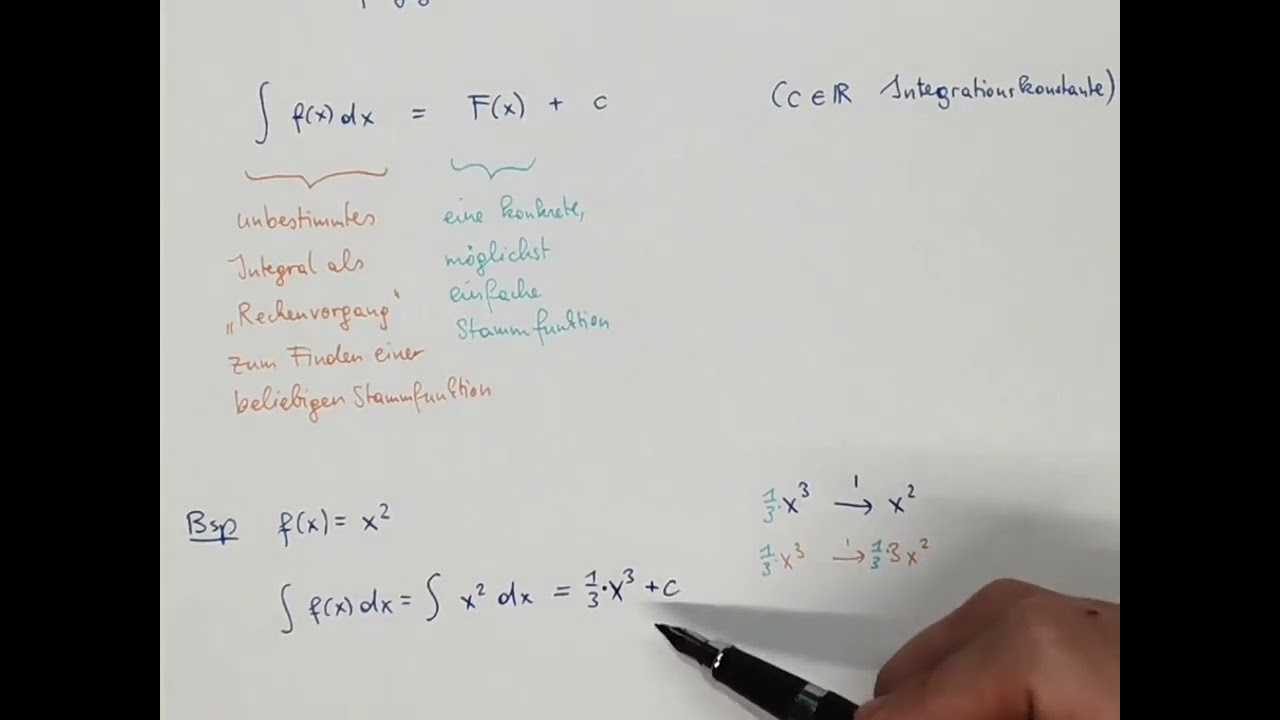 ∫ f(x) dx = F(x) + c (c ∈ ℝ Integrationskonstante)
unbestimmtes
Integral als
„Rechenvorgang“
zum Finden einer
beliebigen Stammfunktion
eine konkrete,
möglichst
einfache
Stammfunktion
Bsp f(x) = x²
∫ f(x) dx = ∫ x² dx = 1/3 · x³ + c
1/3 · x³ →' x²
1/3 · x³ →' 1/3 · 3x²